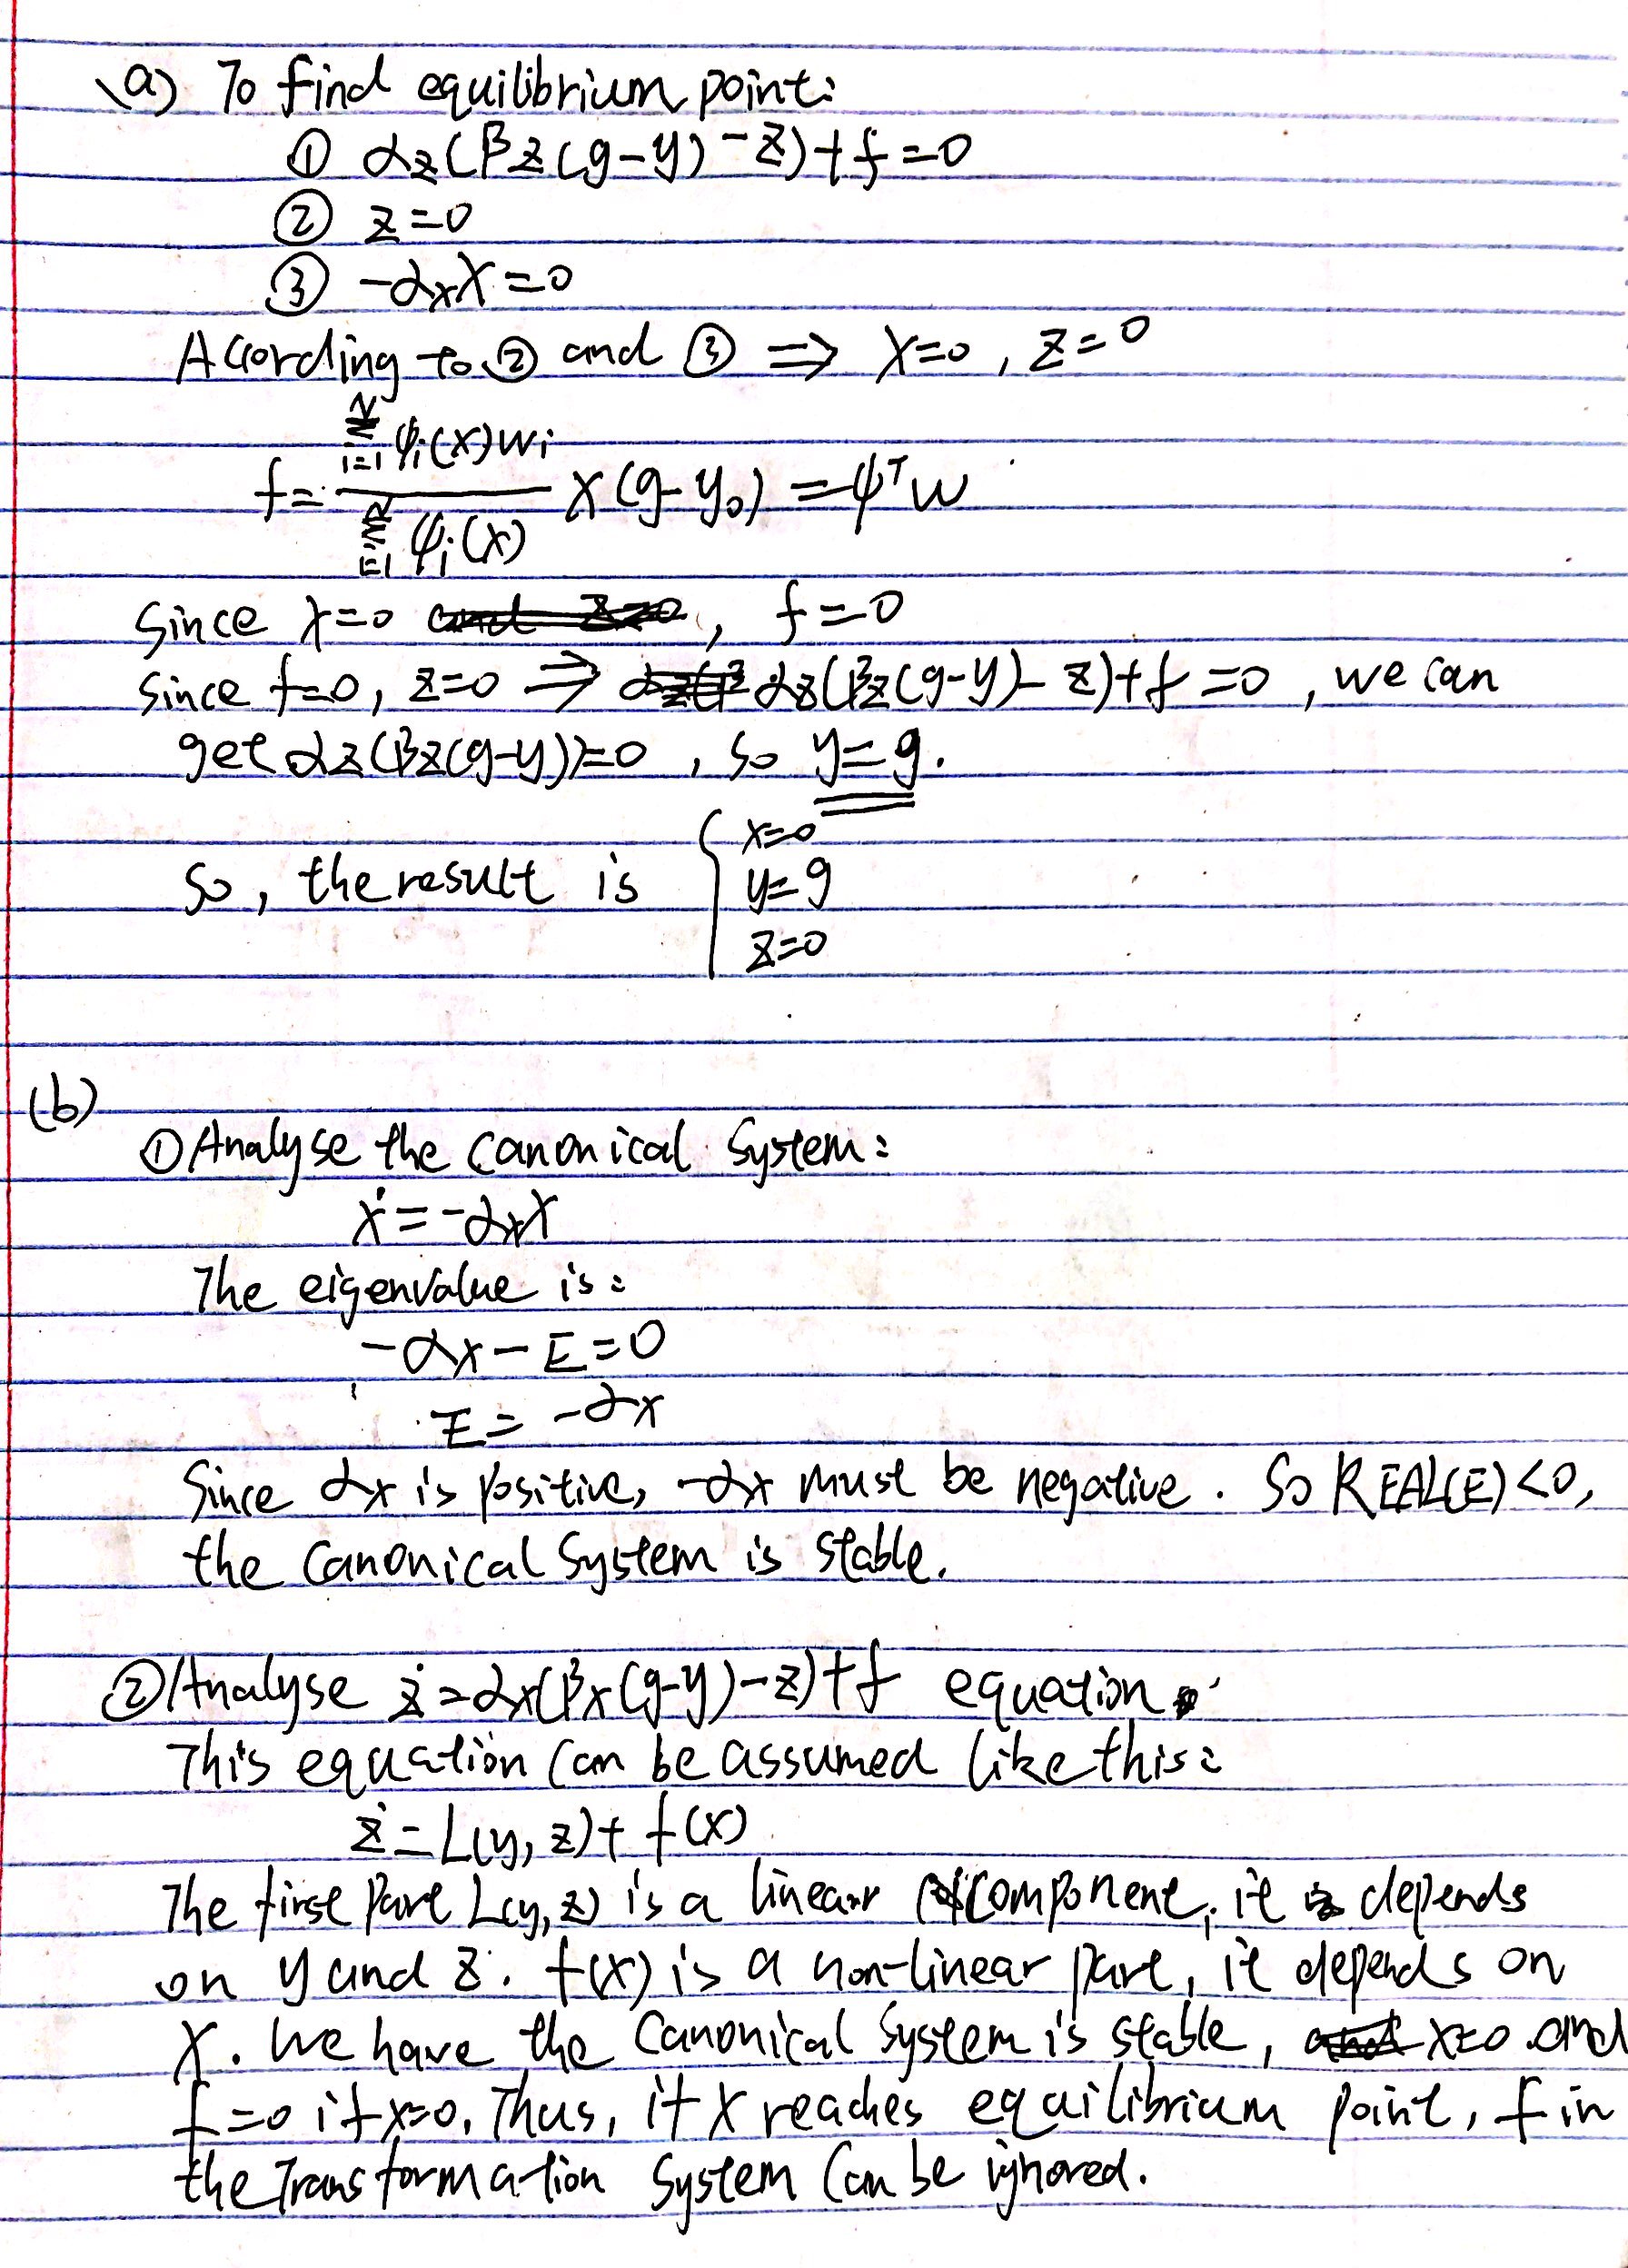 (a) To find equilibrium point:
① αz(βz(g-y)-z)+f=0
② z=0
③ -αxX=0
According to ② and ③ ⇒ X=0, z=0
f = \frac{\sum_{i=1}^{N} ψi(x)wi}{\sum_{i=1}^{N} ψi(x)} X(g-y₀) = ψᵀw
Since x=0, f=0
Since f=0, z=0 ⇒ αz(βz(g-y)-z)+f=0, we can
get αz(βz(g-y))=0, so y=g.
So, the result is { x=0
y=g
z=0
(b)
① Analyse the canonical system:
ẋ=-αxX
The eigenvalue is:
-αx-E=0
E=-αx
Since αx is positive, -αx must be negative. So REAL(E)<0,
the canonical system is stable.
② Analyse ż=αx(βx(g-y)-z)+f equation.
This equation can be assumed like this:
ż=L(y,z)+f(x)
The first part L(y,z) is a linear component, it depends
on y and z. f(x) is a non-linear part, it depends on
X. We have the canonical system is stable, x=0 and
f=0 if x=0. Thus, if X reaches equilibrium point, f in
the Transformation system can be ignored.